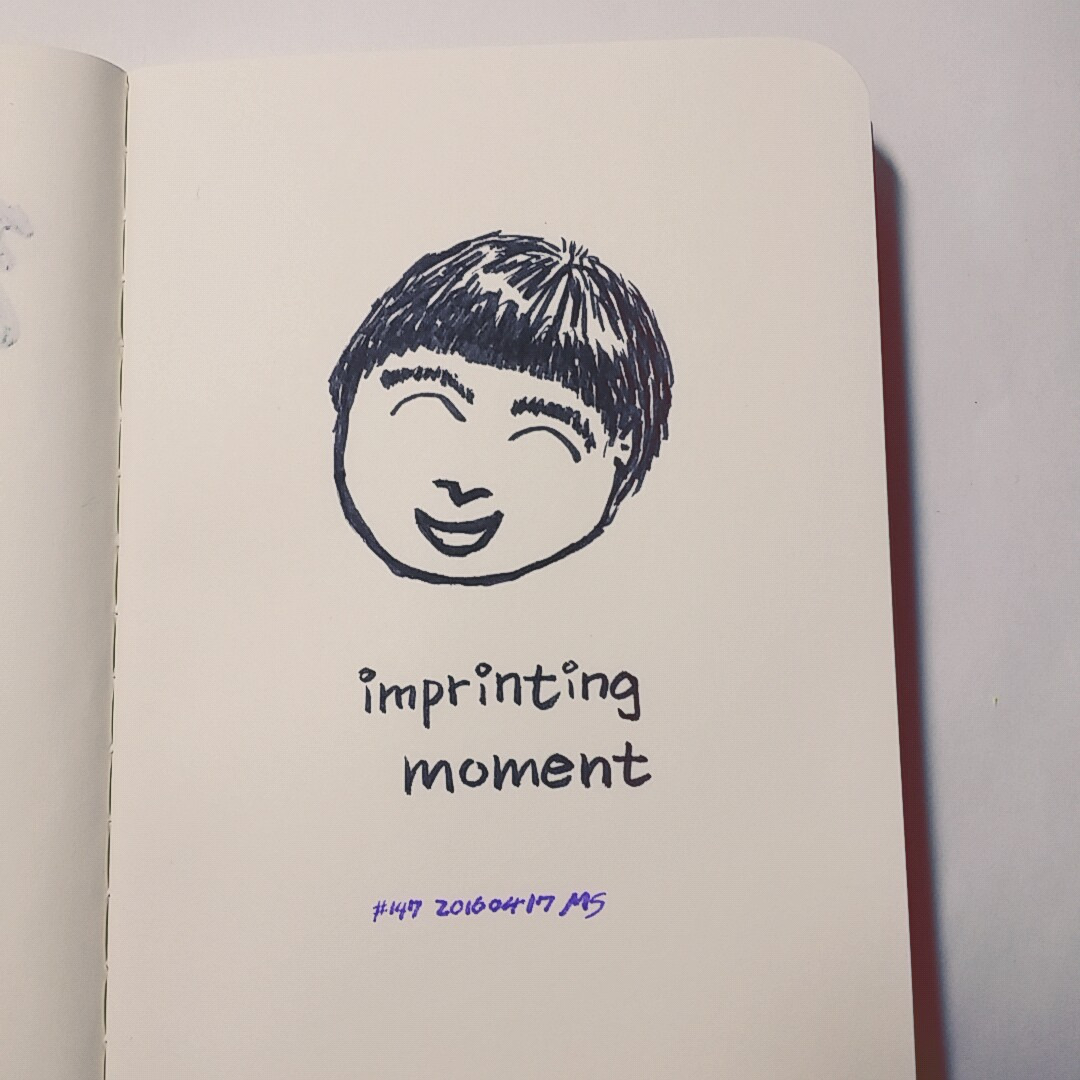 imprinting
moment
#147 20160417 MS